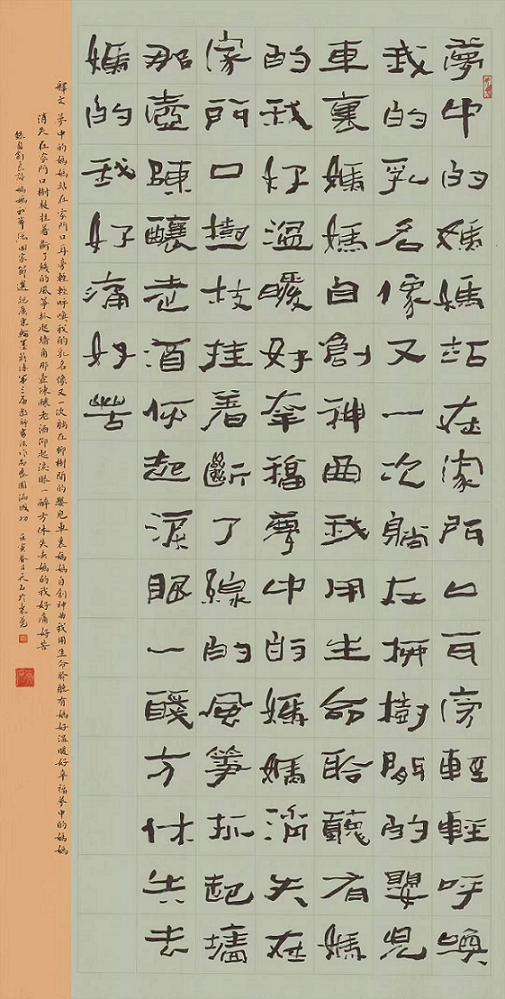 夢中的媽媽站在家門口耳旁輕輕呼喚
我的乳名像又一次躺在柳樹間的嬰兒
車裏媽媽自創神曲我用生命聆聽有媽
的我好溫暖好幸福夢中的媽媽消失在
家門口樹枝挂着斷了線的風箏抓起墻
那壺陳釀老酒仰起淚眼一醉方休失去
媽的我好痛好苦
釋文 夢中的媽媽站在家門口耳旁輕輕呼喚我的乳名像又一次躺在柳樹間的嬰兒車裏媽媽自創神曲我用生命聆聽有媽好溫暖好幸福夢中的媽媽
消失在家門口樹枝挂着斷了綫的風箏抓起墻角那壺陳釀老酒仰起淚眼一醉方休失去媽的我好痛好苦
錄自 媽媽 回家節選 祝廣東 第三屆 書法作品展圓滿成功 壬寅春日 於東莞